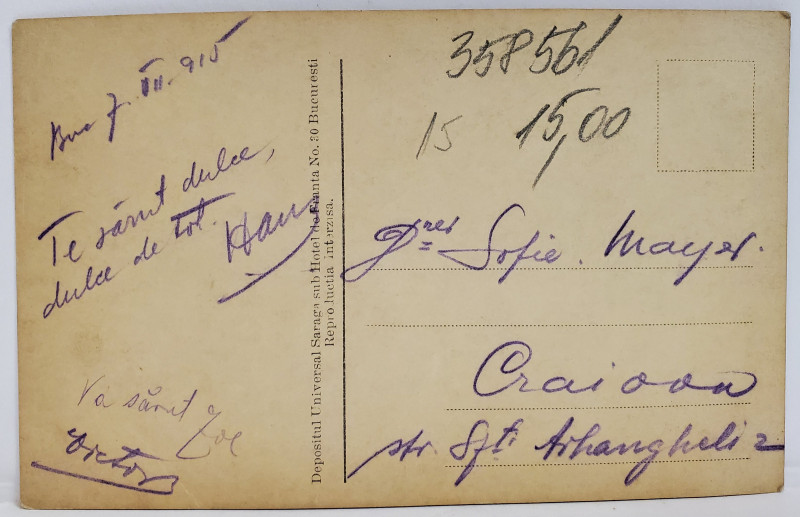 Buc 7. III. 915
Te sărut dulce,
dulce de tot.
Hau
Vă sărut
Zoe
Victor
Depositul Universal Saraga sub Hotel de Franta No. 30 Bucuresti
Reproductia interzisa.
358561
15
15,00
Dnei Sofie. Mayer.
Craiova
str. Sfți Arhangheli 2